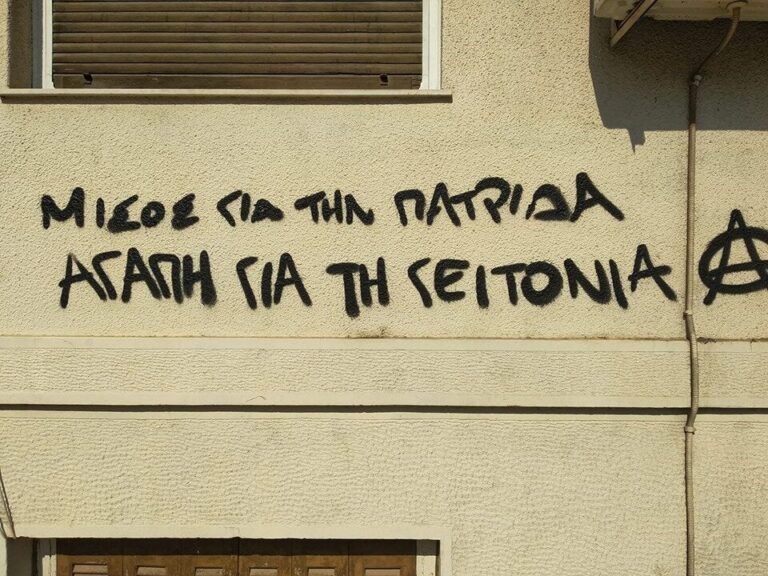 ΜΙΣΟΣ ΓΙΑ ΤΗΝ ΠΑΤΡΙΔΑ
ΑΓΑΠΗ ΓΙΑ ΤΗ ΓΕΙΤΟΝΙΑ Ⓐ